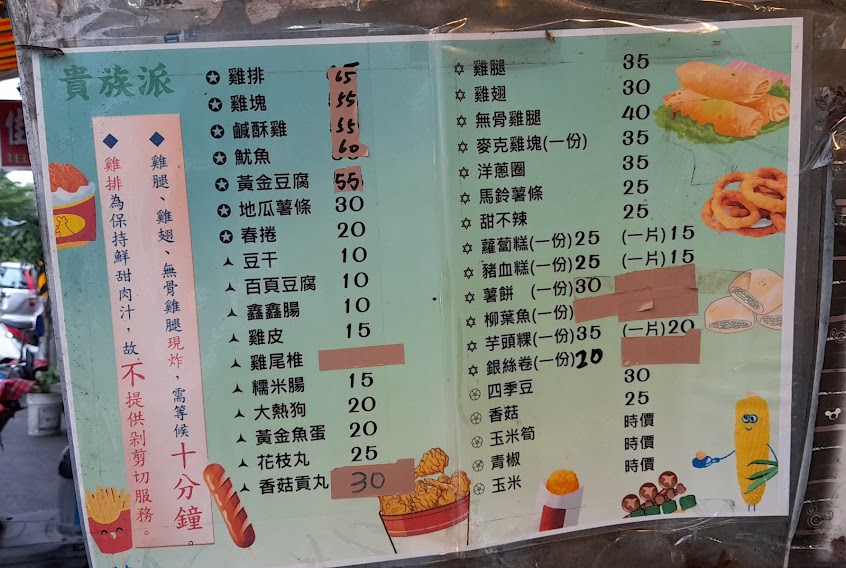 貴族派
◆ 雞腿、雞翅、無骨雞腿現炸，需等候十分鐘。
◆ 雞排為保持鮮甜肉汁，故不提供剁剪切服務。
雞排 65
雞塊 55
鹹酥雞 55
魷魚 60
黃金豆腐 55
地瓜薯條 30
春捲 20
豆干 10
百頁豆腐 10
鑫鑫腸 10
雞皮 15
雞尾椎
糯米腸 15
大熱狗 20
黃金魚蛋 20
花枝丸 25
香菇貢丸 30
雞腿 35
雞翅 30
無骨雞腿 40
麥克雞塊(一份) 35
洋蔥圈 35
馬鈴薯條 25
甜不辣 25
蘿蔔糕(一份)25 (一片)15
豬血糕(一份)25 (一片)15
薯餅 (一份)30
柳葉魚(一份)
芋頭粿(一份)35 (一片)20
銀絲卷(一份)20
四季豆 30
香菇 25
玉米筍 時價
青椒 時價
玉米 時價